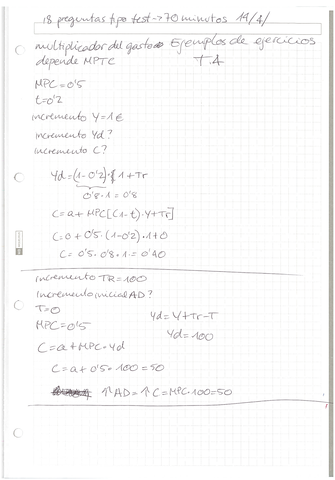 18 preguntas tipo test → 70 minutos 14/4/
multiplicador del gasto Ejemplos de ejercicios
depende MPTC T.4
MPC=0'5
t=0'2
incremento Y=1€
incremento Yd?
incremento C?
Yd=(1-0'2)·1+Tr
0'8·1=0'8
C=a+MPC[(1-t)·Y+Tr]
C=0+0'5·(1-0'2)·1+0
C=0'5·0'8·1=0'40
incremento TR=100
incremento inicial AD?
T=0 Yd=Y+Tr-T
MPC=0'5 Yd=100
C=a+MPC·Yd
C=a+0'5·100=50
↑AD=↑C=MPC·100=50